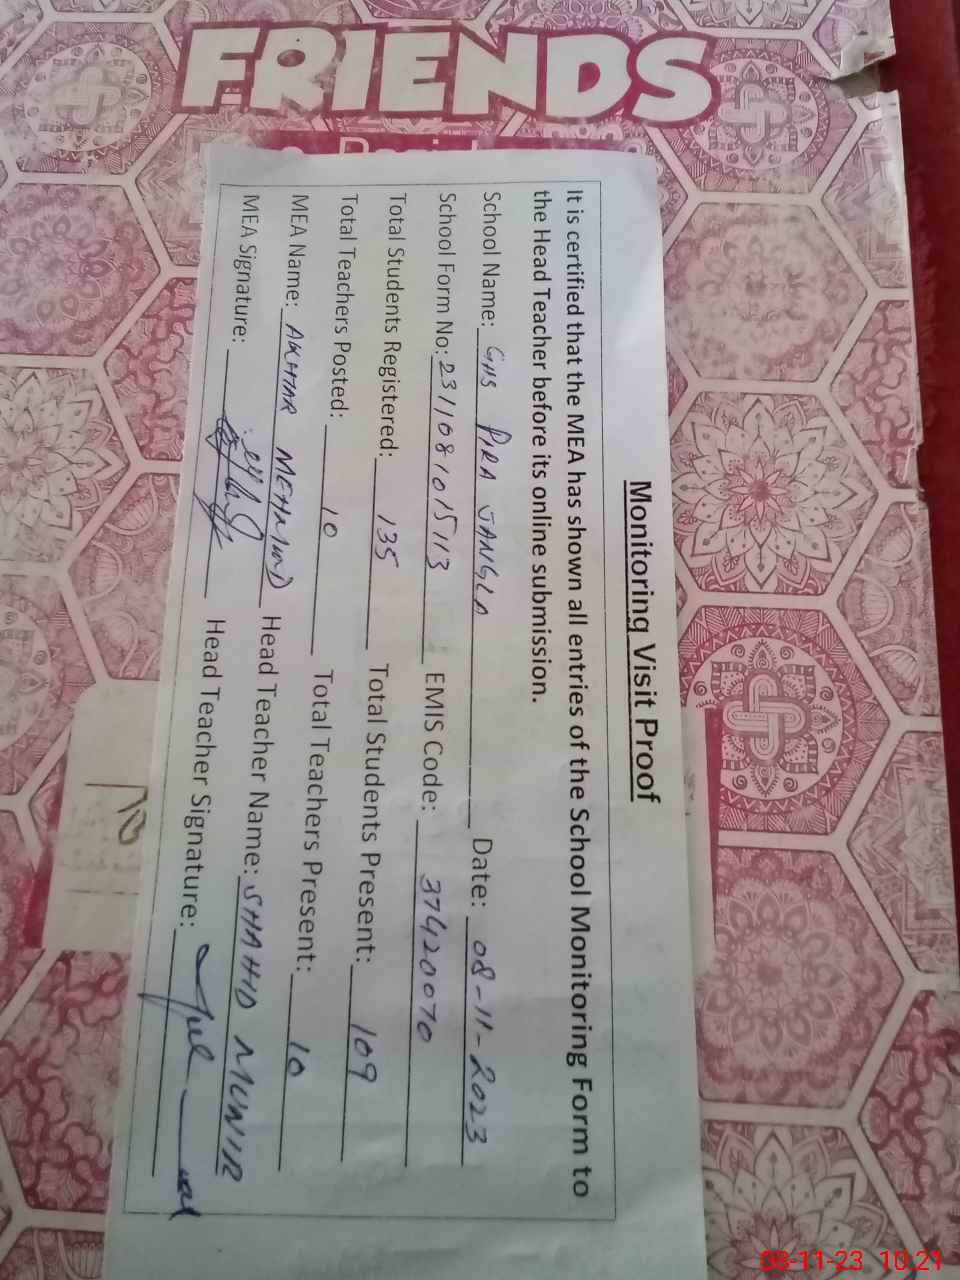 FRIENDS
Monitoring Visit Proof
It is certified that the MEA has shown all entries of the School Monitoring Form to
the Head Teacher before its online submission.
School Name: GHS PIRA JANGLA Date: 08-11-2023
School Form No: 2311081015113 EMIS Code: 37420070
Total Students Registered: 135 Total Students Present: 109
Total Teachers Posted: 10 Total Teachers Present: 10
MEA Name: AKHTAR MEHMOOD Head Teacher Name: SHAHID MUNIR
MEA Signature: Head Teacher Signature:
08-11-23 10:21